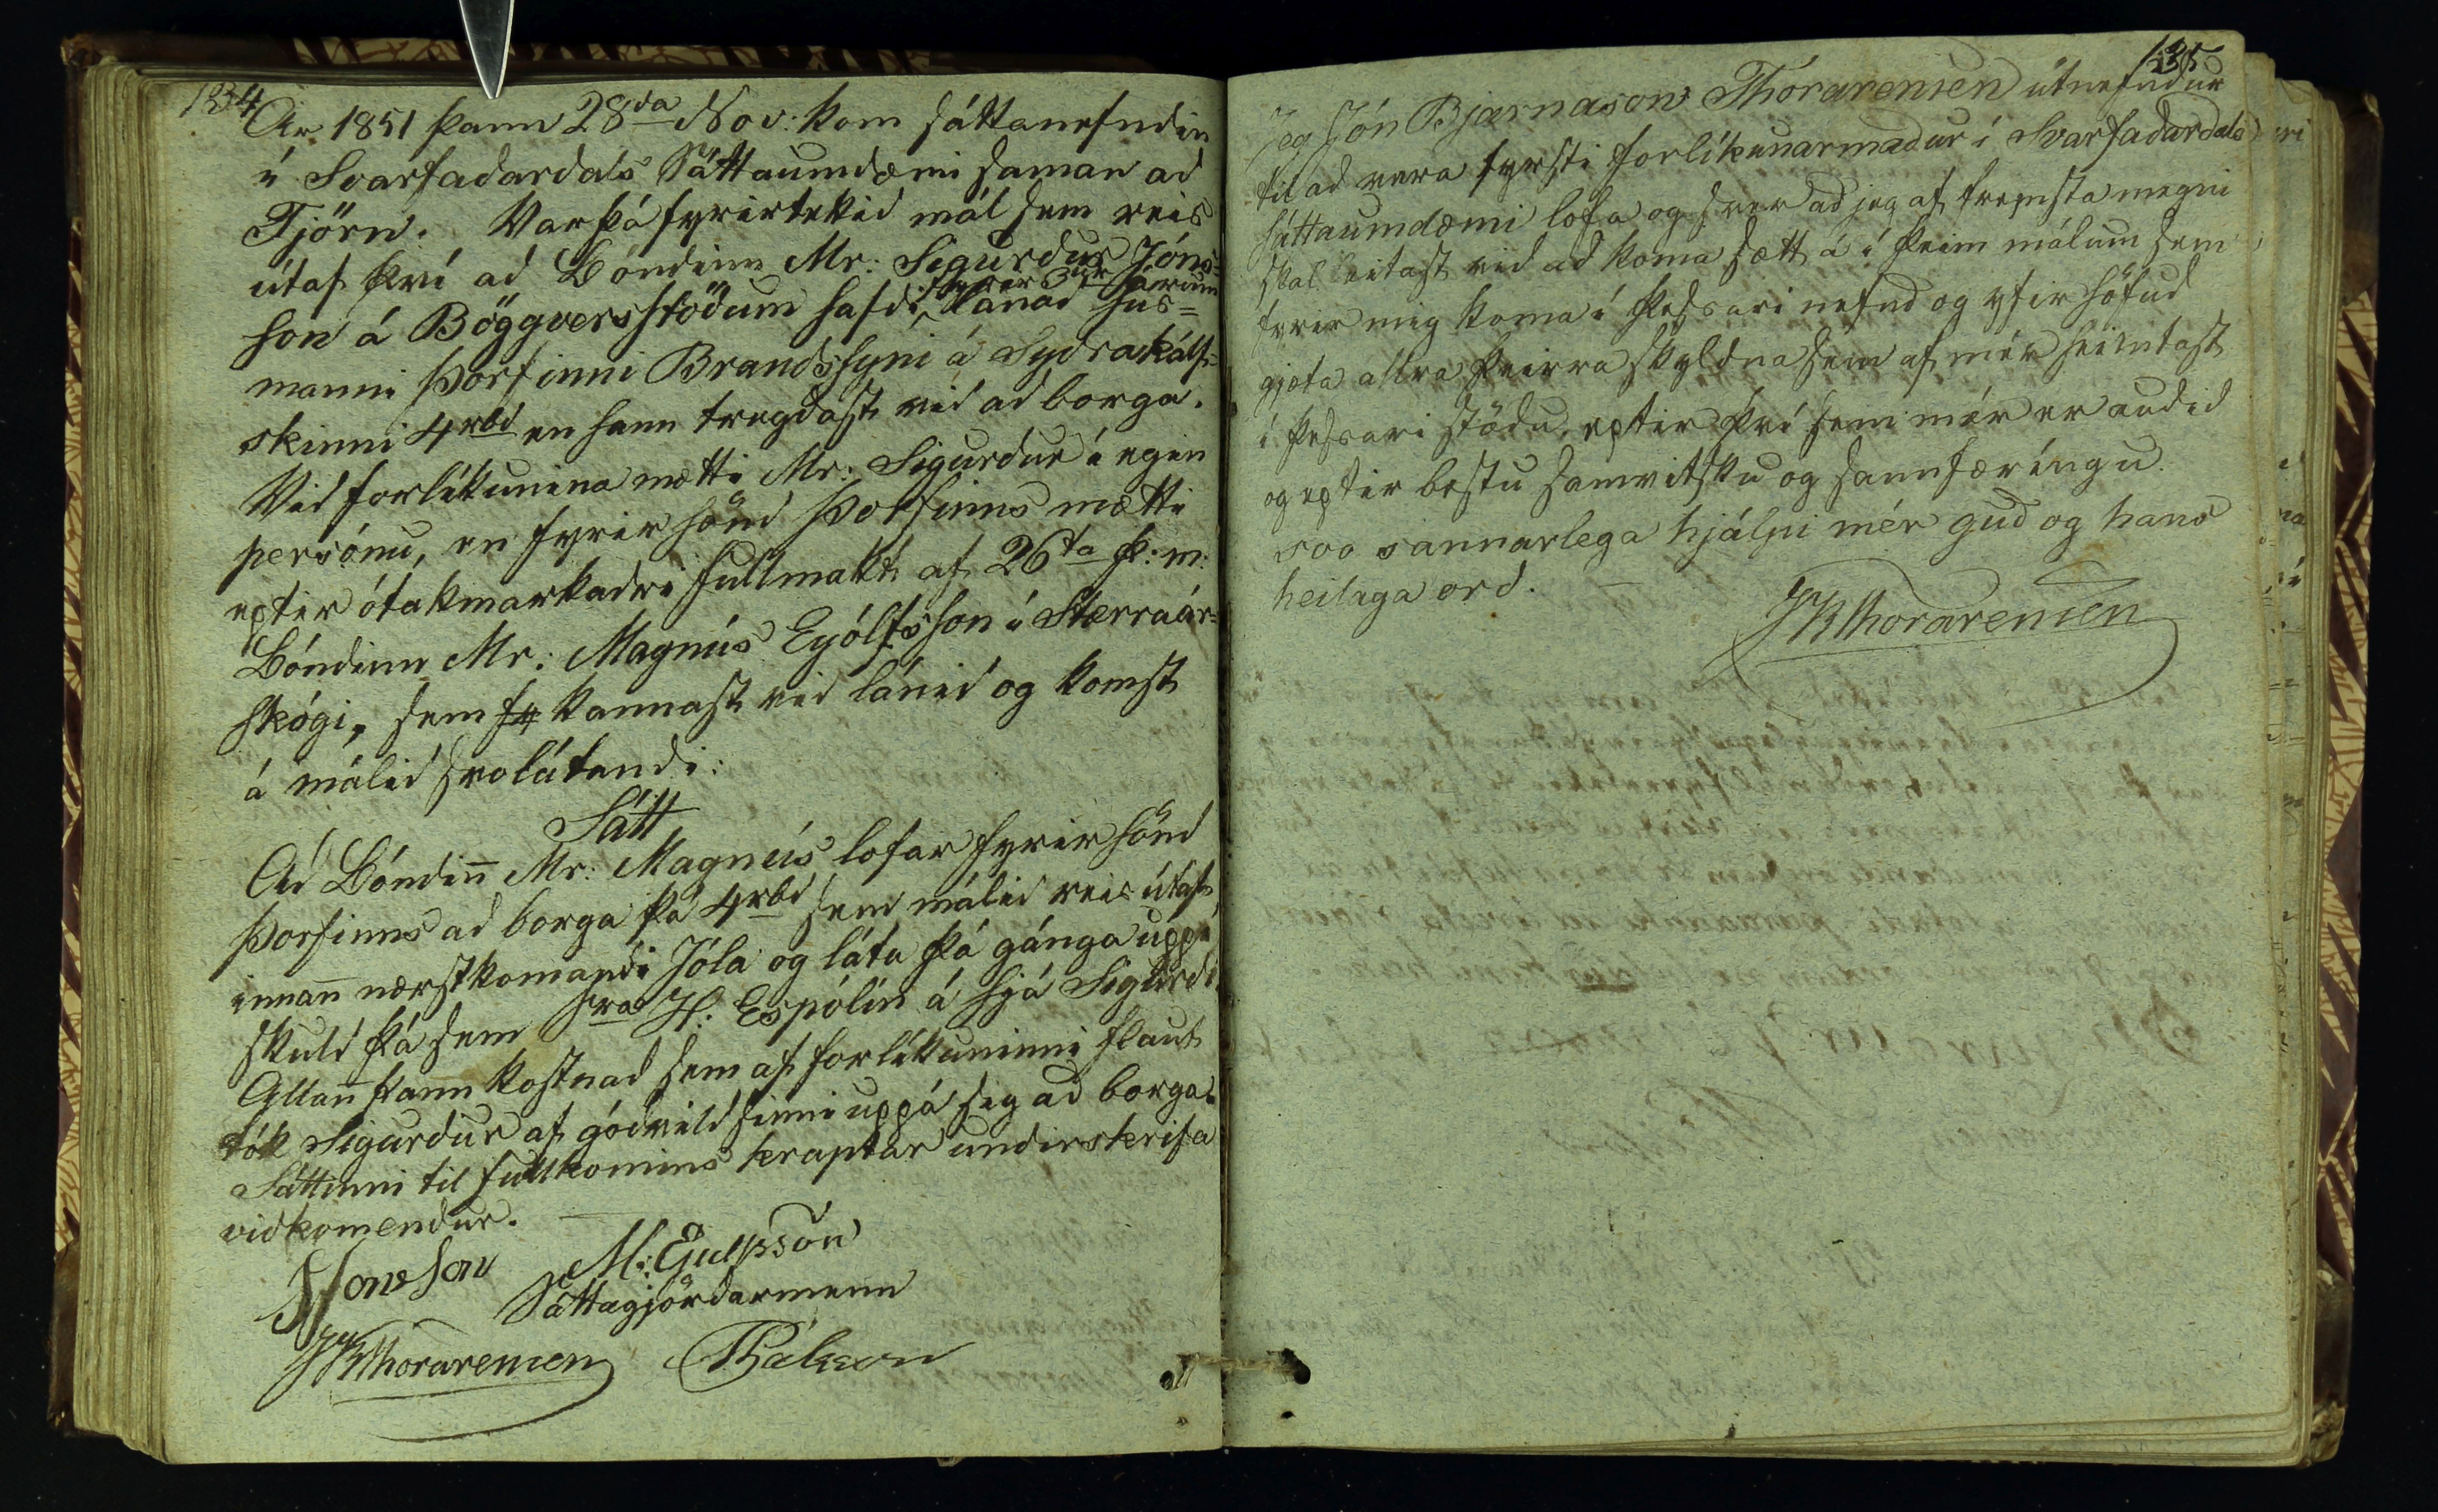 134
Ar 1851 þann 28da Nov: kom sáttanefndin
í Svarfadardals Sáttaumdæmi saman ad
Tjörn. Var þá fyrirtekid mál sem reis
útaf því ad Bóndinn Mr: Sigurdur Jóns-
fyrer 3ur árum
son á Böggversstödum hafdi lánad hús-
manni Þorfinni Brandssyni á Sydrakálf-
skinni 4rbd en hann tregdast vid ad borga.
Vid forlíkunina mætti Mr: Sigurdur í egin
persónu, en fyrir hönd Þorfinns mætti
eptir ótakmarkadri fullmakt af 26ta þ: m:
Bóndinn Mr: Magnús Eyólfsson í Stærraár-
skógi, sem kannast vid lánid og komst
á málid svolátandi:
Sátt
Ad Bóndinn Mr: Magnús lofar fyrir hönd
Þorfinns ad borga þá 4rbd sem málid reis útaf,
innann næstkomandi Jóla og láta þá gánga uppí
skuld þá sem Sra H: Espólin á hjá Sigurdi.
Allann þann kostnad sem af forlíkuninni flaut
tók Sigurdur af gódvild sinni uppá sig ad borga.
Sáttinni til fullkomins kraptar undirskrifa
vidkomendur.
SJonsson M: Ejulfsson
Sáttagjördarmenn
JBThorarensen ThPálsson
135
Jeg Jón Bjarnason Thórarensen útnefndur
til ad vera fyrsti forlíkunarmadur í Svarfadardals
sáttaumdæmi lofa og sver ad jeg af fremsta megni
skal leitast vid ad koma sætt á í þeim málum sem
fyrir mig koma í þessari nefnd og yfir höfud
gjæta allra þeirra skyldna sem af mér heimtast
í þessari stödu, eptir því sem mér er audid
og eptir bestu samvitsku og sannfæríngu.
svo sannarlega hjálpi mér gud og hans
heilaga ord.
JBThorarensen